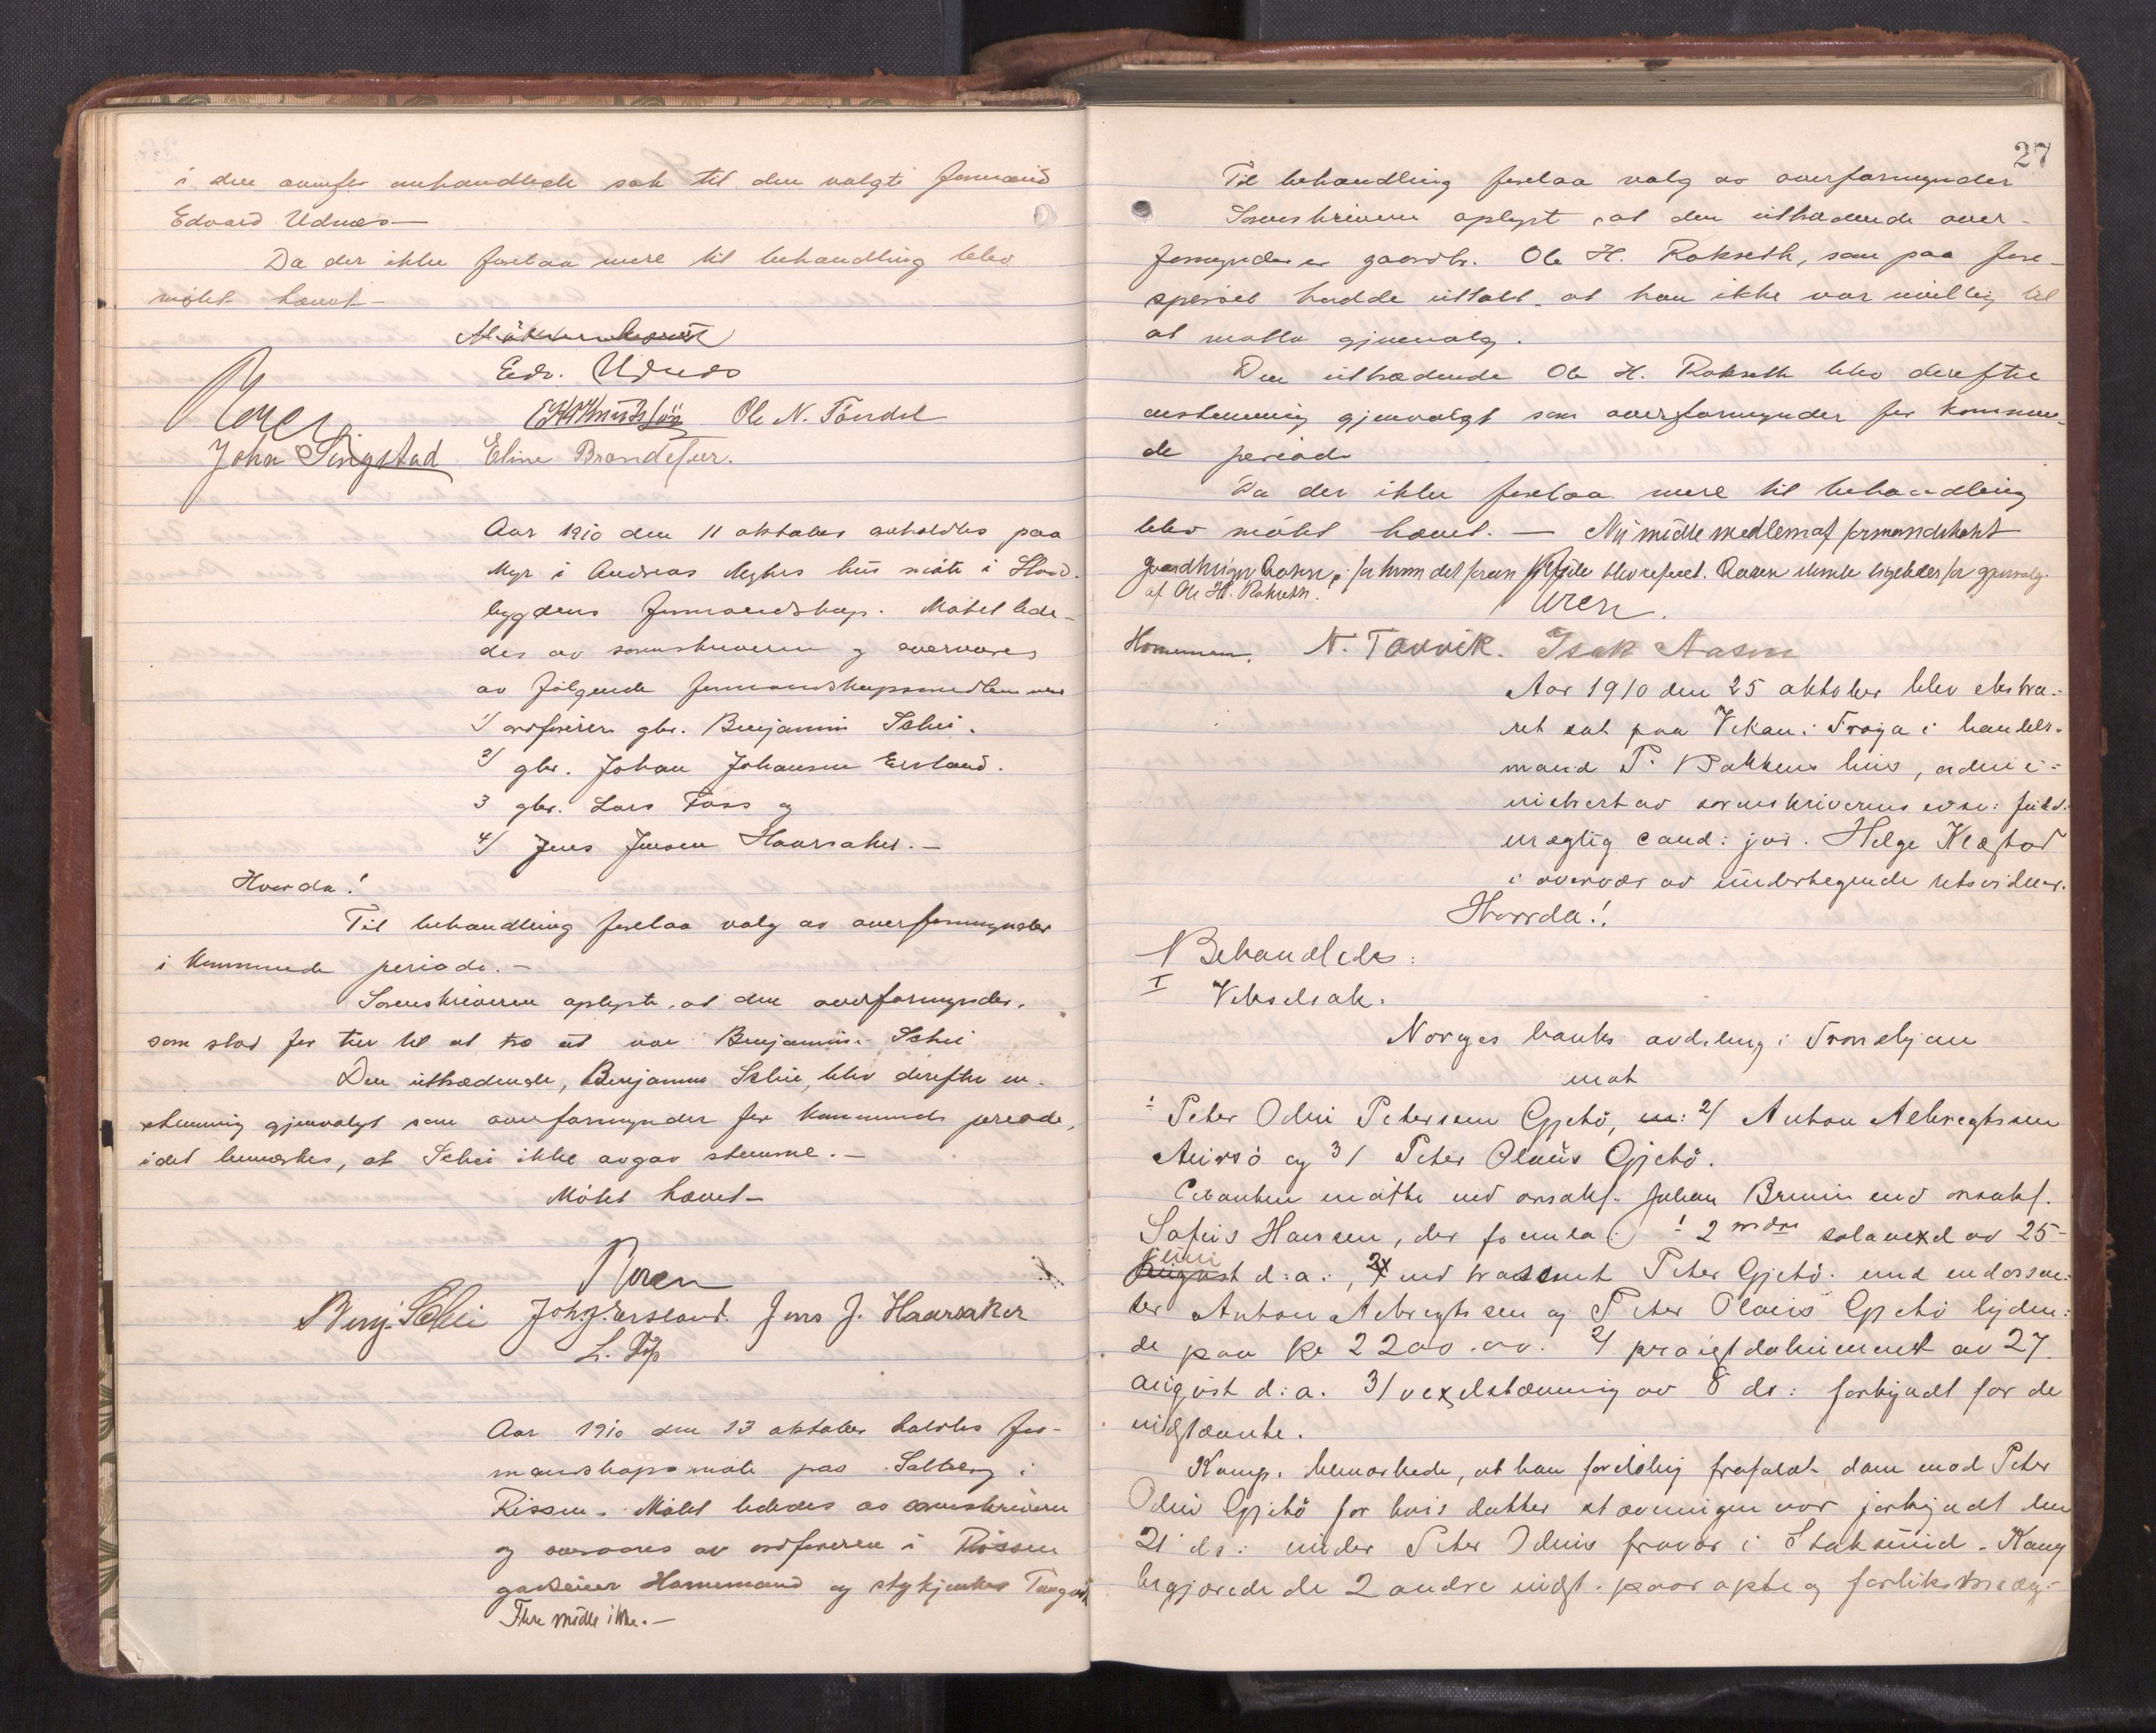 i den ovenfor omhandlede sak til den valgte formand
Edvard Udnæs —
Da der ikke forelaa mere til behandling blev
møtet hævet —
Edv. Udnæs
Ole N. Tøndel
John Singstad Eline Brandtsær.
Aar 1910 den 11 oktober avholdtes paa
Myr i Andreas Myhrs hus møte i Stad-
bygdens formandskap. Møtet lede-
des av sorenskriveren og overvares
av følgende formandskapsmedlemmer
1/ ordfører gbr. Benjamin Schei.
2/ gbr. Johan Johansen Ersland.
3 gbr. Lars Foss og
4/ Jens Jensen Haarsaker. —
Hvorda!
Til behandling forelaa valg av overformynder
i kommende periode. —
Sorenskriveren oplyste, at den overformynder,
som stod for tur til at træ ut var Benjamin Schei
Den uttrædende, Benjamin Schei, blev derefter en-
stemmig gjenvalgt som overformynder for kommende periode,
idet bemerkes, at Schei ikke avgav stemme. —
Møtet hævet —
Benj. Schei Joh. J. Ersland. Jens J. Haarsaker
L. Foss
Aar 1910 den 13 oktober holdtes for-
mandskapsmøte paa Solberg i
Rissen. Møtet lededes av sorenskriveren
og overvares av ordføreren i Rissen
gaardeier Hornemand og
Flere mødte ikke. —
27
Til behandling forelaa valg av overformynder
Sorenskriveren oplyst, at den uttrædende over-
formynder er gaardbr. Ole H. Rokseth, som paa fore-
spørsel hadde uttalt, at han ikke var uvillig til
at motta gjenvalg.
Den uttrædende Ole H. Rokseth blev derefter
enstemmig gjenvalgt som overformynder for kommen-
de periode
Da der ikke forelaa mere til behandling
blev møtet hævet. — Nu mødte medlem af formandskabet
gaardbruger Aasen, for hvem det blev referet. Aasen stemte ligeledes for gjenvalg
af Ole H. Rokseth.
Hornemann. N. Tavvik. Isak Aasen
Aar 1910 den 25 oktober blev ekstra-
ret sat paa Vikan i Frøya i handels-
mand P. Bakkens hus, admi-
nistrert av sorenskriverens edsv: fuld-
mægtig cand: jur. Helge Klæstad
i overvær av undertegnede retsvidner.
Hvorda!
Behandledes:
I Vekselsak.
Norges banks avdeling i Trondhjem
mot
1 Peter Odin Petersen Gjetø, 2/ Anton Albregtsen
Auirsø og 3/ Peter Olaus Gjetø.
Citanten møtte ved orsakf. Johan Bruun ved orsakf.
Sofus Hansen, der fremla: 1 2 mdrs solavexel av 25
juni d: a:, med trassent Peter Gjetø med endossen-
ter Anton Albregtsen og Peter Olaus Gjetø lyden-
de paa kr 2200.00. 2/ protestdokument av 27
august d: a. 3/ vexelstævning av 8 ds: forkyndt for de
indstævnte.
Komp. bemærkede, at han foreløbig frafaldt dom mod Peter
Odin Gjetø for hvis datter stævningen var forkyndt den
21 ds: under Peter Odins fravær i Staksund. Komp
begjærede de 2 andre indst. paaropte og